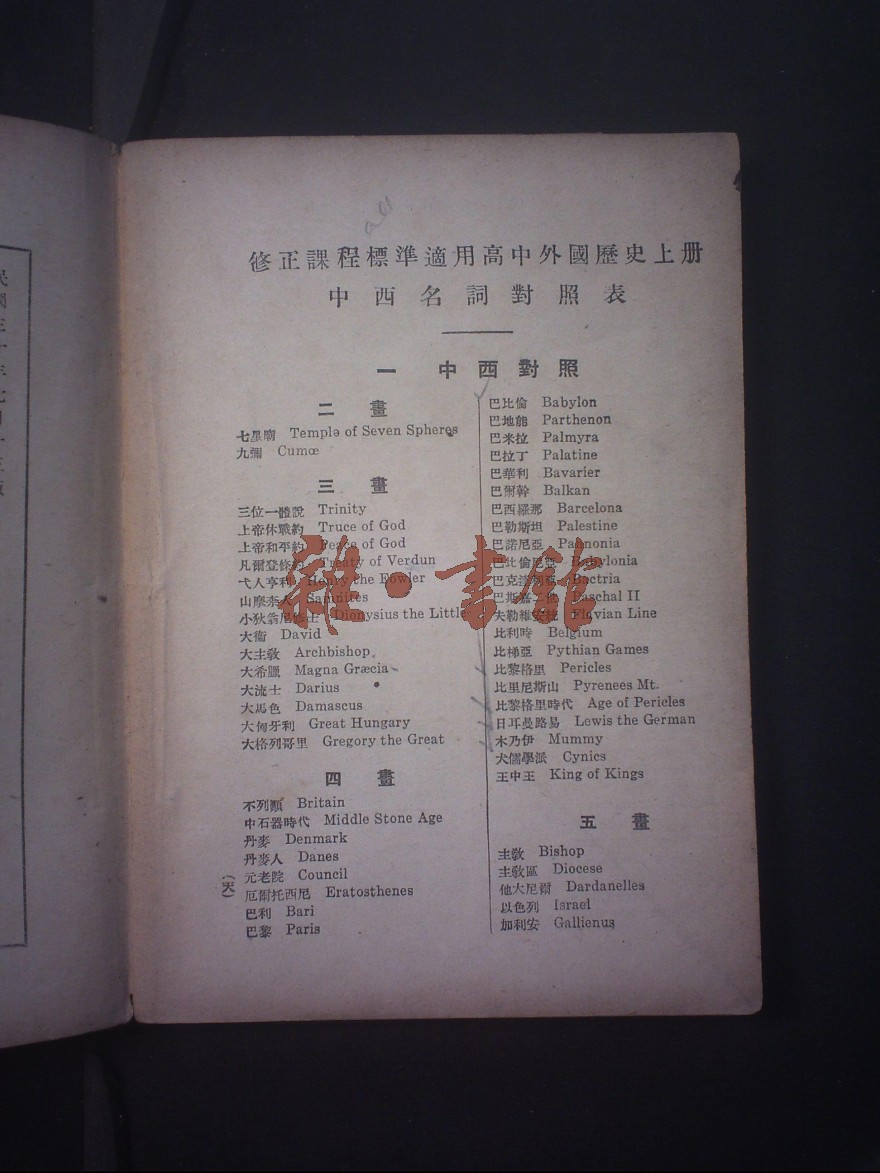 修正課程標準適用高中外國歷史上册
中西名詞對照表
一 中西對照
二畫
七星廟 Temple of Seven Spheres
九彌 Cumœ
三畫
三位一體說 Trinity
上帝休戰約 Truce of God
上帝和平約 Peace of God
凡爾登條約 Treaty of Verdun
弋人亨利 Henry the Fowler
山摩奈人 Samnites
小狄翁尼修士 Dionysius the Little
大衞 David
大主敎 Archbishop
大希臘 Magna Græcia
大流士 Darius
大馬色 Damascus
大匈牙利 Great Hungary
大格列哥里 Gregory the Great
四畫
不列顚 Britain
中石器時代 Middle Stone Age
丹麥 Denmark
丹麥人 Danes
元老院 Council
厄爾托西尼 Eratosthenes
巴利 Bari
巴黎 Paris
巴比倫 Babylon
巴地能 Parthenon
巴米拉 Palmyra
巴拉丁 Palatine
巴華利 Bavarier
巴爾幹 Balkan
巴西羅那 Barcelona
巴勒斯坦 Palestine
巴諾尼亞 Pannonia
巴比倫尼亞 Babylonia
巴克 Bactria
巴斯嘉二世 Paschal II
夫勒維安統 Flavian Line
比利時 Belgium
比梯亞 Pythian Games
比黎格里 Pericles
比里尼斯山 Pyrenees Mt.
比黎格里時代 Age of Pericles
日耳曼路易 Lewis the German
木乃伊 Mummy
犬儒學派 Cynics
王中王 King of Kings
五畫
主敎 Bishop
主敎區 Diocese
他大尼爾 Dardanelles
以色列 Israel
加利安 Gallienus
(天)
雜·書館